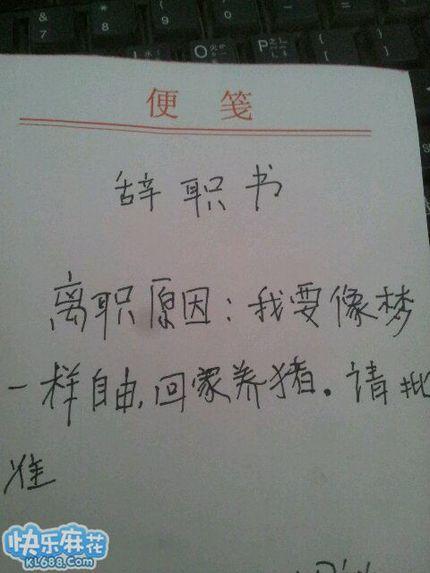 8 9
O P
便笺
辞职书
离职原因：我要像梦
一样自由，回家养猪。请批
准
快乐麻花
KL688.Com